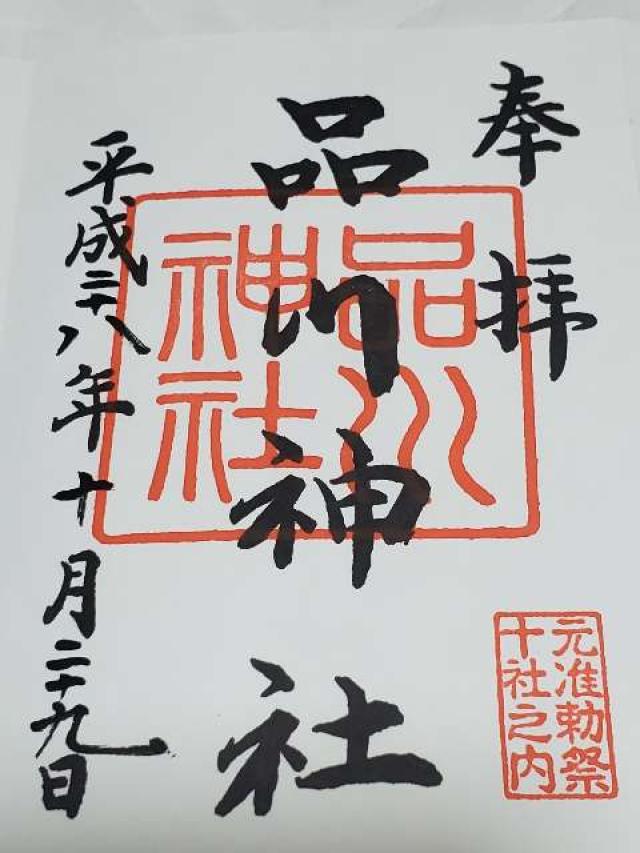 奉拝
元准勅祭
十社之内
品川神社
品川
神社
平成二十八年十月二十九日